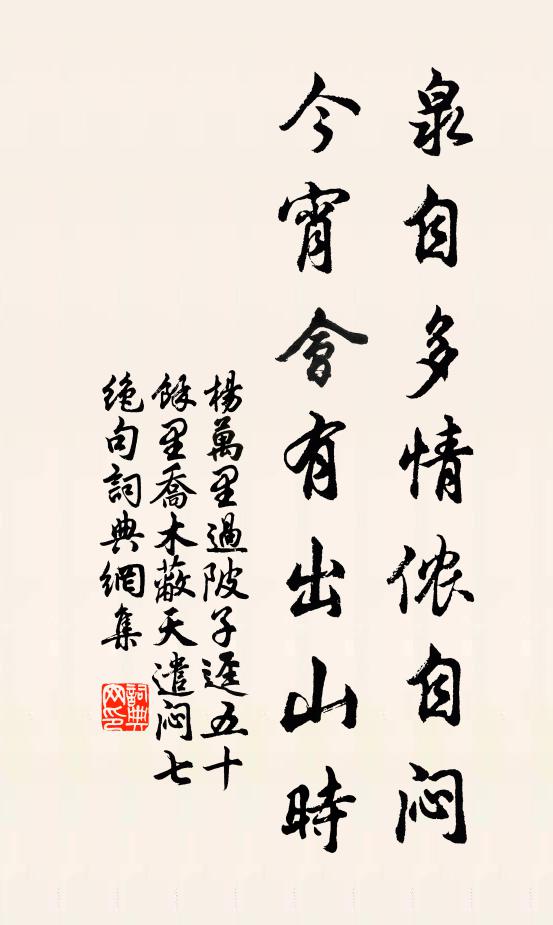 泉自多情侬自闷
今宵會有出山時
楊萬里過陂子逕五十
餘里喬木蔽天遣闷七
绝句詞典網集
詞典
网印